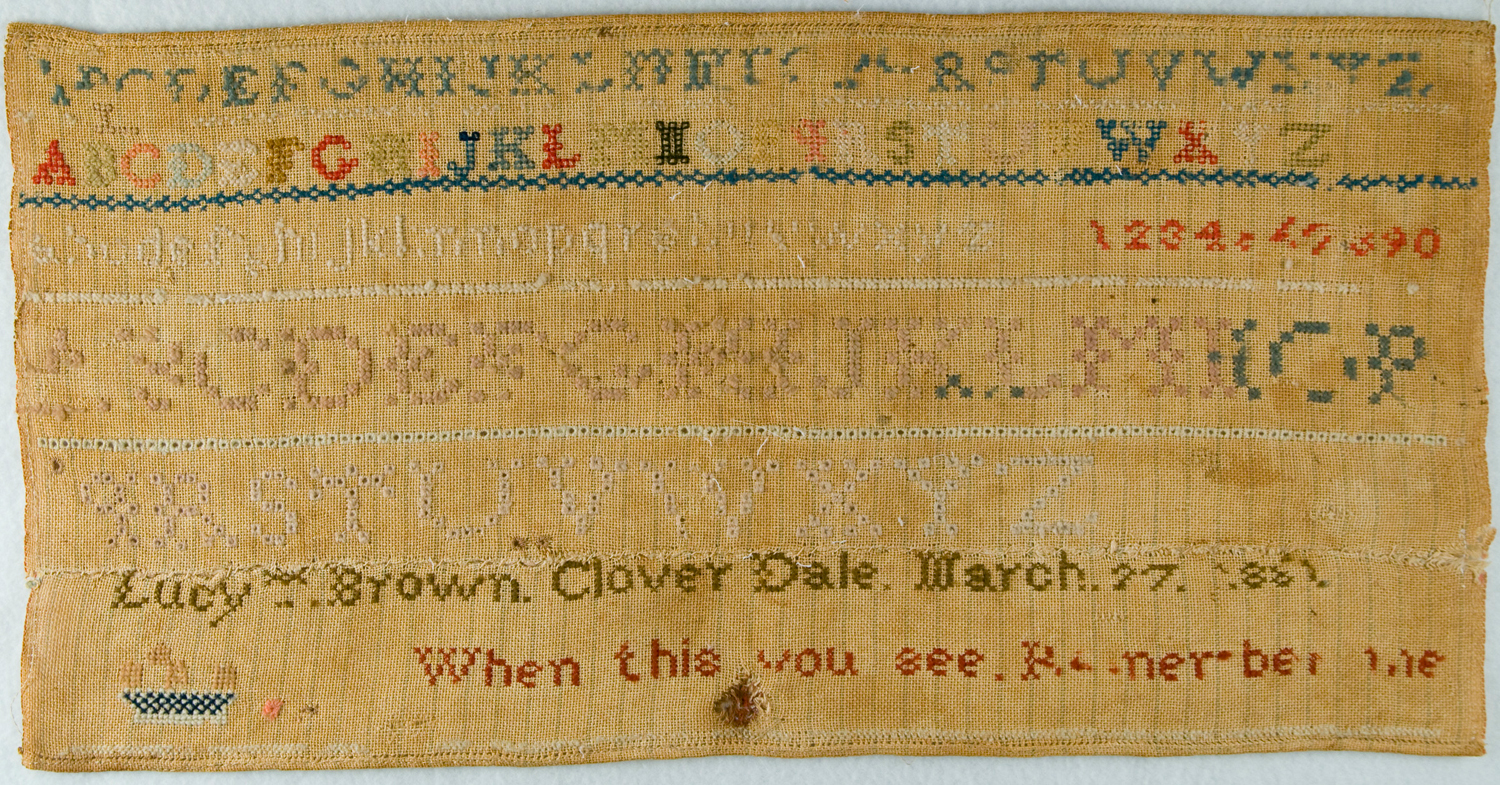 A B C D E F G H I J K L M N O P Q R S T U V W X Y Z
A B C D E F G H I J K L M N O P Q R S T U V W X Y Z
a b c d e f g h i j k l m n o p q r s t u v w x y z 1 2 3 4 5 6 7 8 9 0
A B C D E F G H I J K L M N O P
Q R S T U V W X Y Z
Lucy T. Brown. Clover Dale. March. 27.
When this you see. Remember me